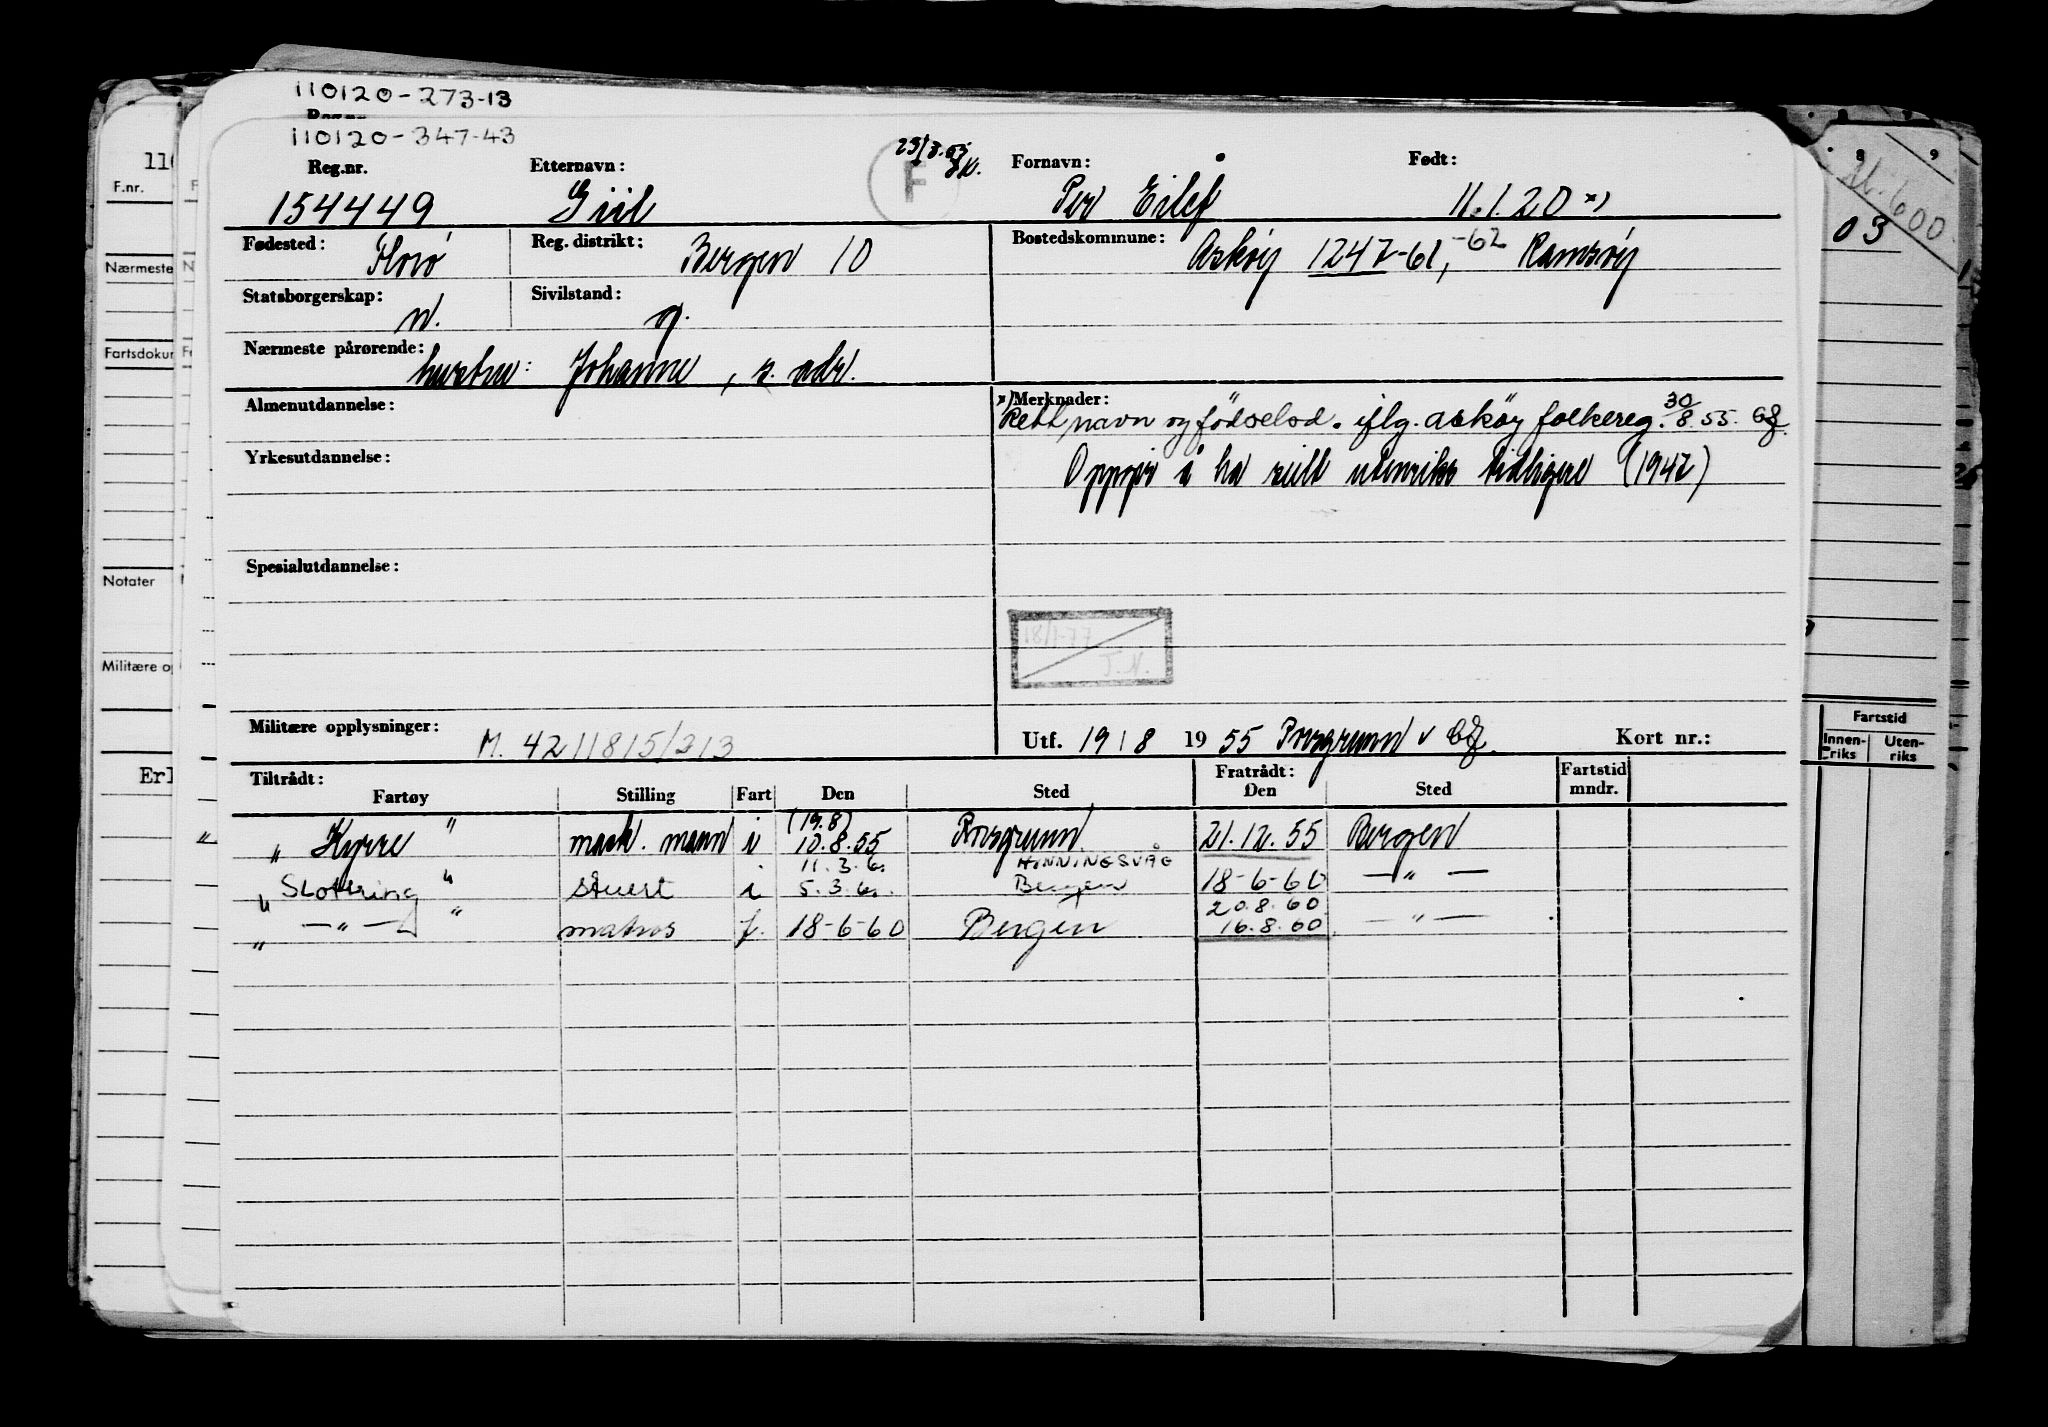 110120-273-13
110120-347-43
Reg.nr. Etternavn: F 23/3.63 Fornavn: Født:
154449 Giil Per Eilef 11.1.20 x)
Fødested: Florø Reg. distrikt: Bergen 10 Bostedskommune: Askøy 1247-61, -62 Ramsøy
Statsborgerskap: n. Sivilstand: g.
Nærmeste pårørende: hustru: Johanne, s. adr.
Almenutdannelse: x) Merknader:
Rett navn og fødselsd. iflg. Askøy folkereg. 30/8.55. GJ.
Yrkesutdannelse: Oppgir å ha seilt utenriks tidligere (1947)
Spesialutdannelse:
18/1-77
T.N.
Militære opplysninger: M. 4211815/313 Utf. 19/8 1955 Porsgrunn v GJ. Kort nr.:
Tiltrådt: Fratrådt: Fartstid
Fartøy Stilling Fart Den Sted Den Sted mndr.
(19.8)
"Kyrre" mask. mann i 10.8.55 Porsgrunn 21.12.55 Bergen
11.3.60 HONNINGSVÅG
"Slotering" stuert i 5.3.60 Bergen 18-6-60 — " —
20.8.60
" — " — " matros f. 18-6-60 Bergen 16.8.60 — " —
110
F.nr.
Nærmeste
Fartsdokum
Notater
Militære op
Erl
8 9
600
03
Fartstid
Innen-riks Uten-riks